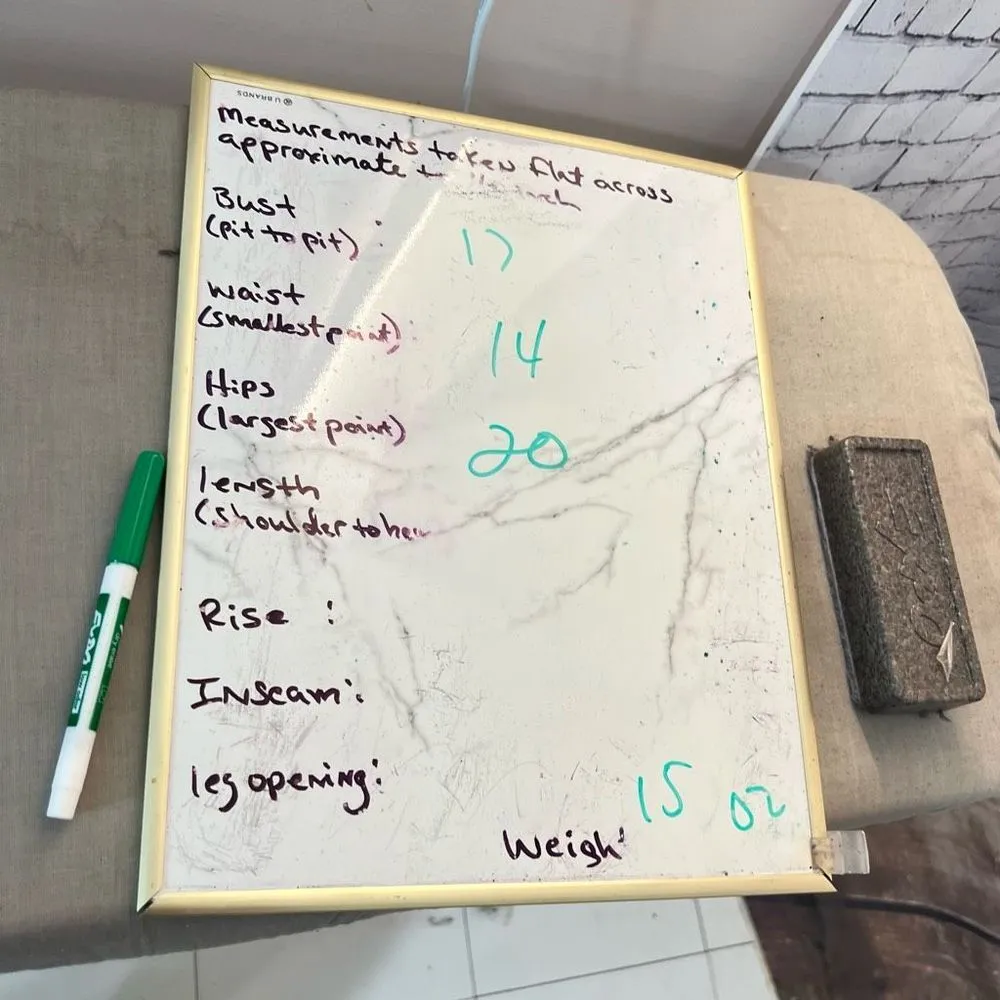 U BRANDS
Measurements taken flat across
approximate inch
Bust
(pit to pit) : 17
Waist
(smallest point) : 14
Hips
(largest point) 20
length
(shoulder to
Rise :
Inseam :
leg opening :
15 oz
Weigh
EXPO
QUARTET